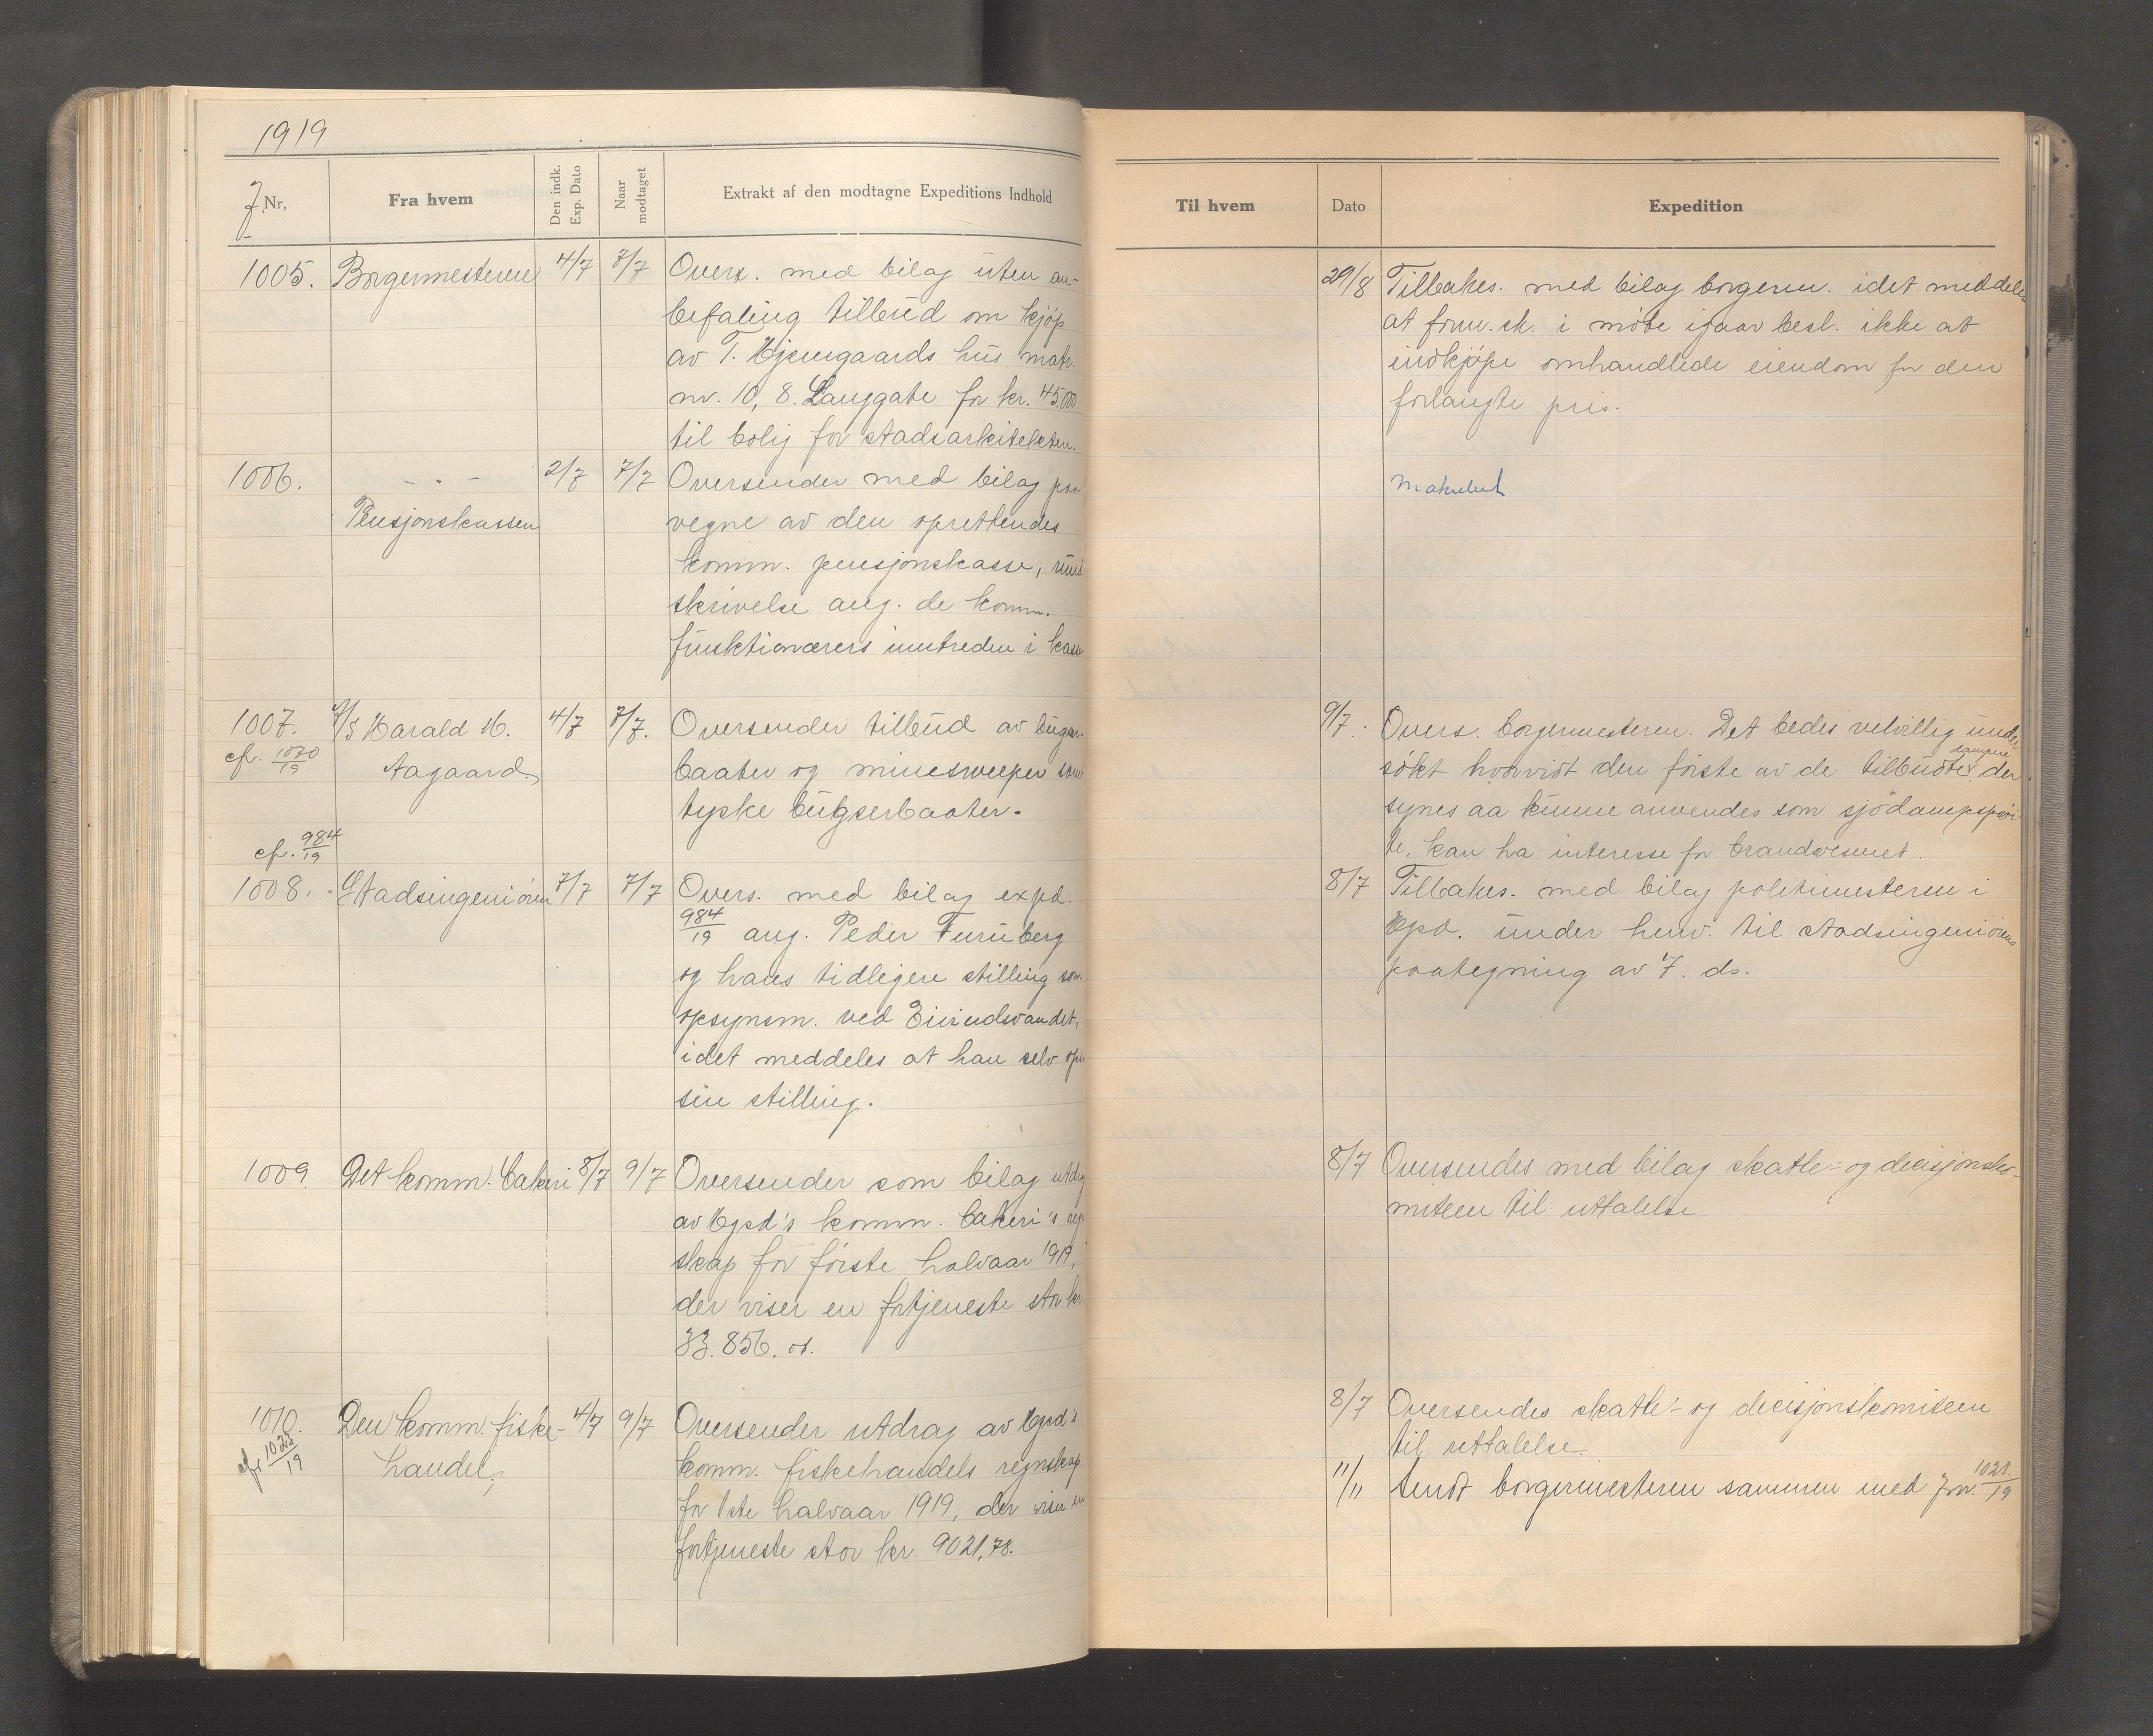 1919
J. Nr.
Fra hvem
Den indk. Exp. Dato
Naar modtaget
Extrakt af den modtagne Expeditions Indhold
1005. Borgermesteren 4/7 7/7 Overs. med bilag uten an-
befaling tilbud om kjöp
av T. Hjemgaards hus matr.
nr. 10, 8. Langgate for kr. 45.000
til bolig for stadsarkitekten.
1006. - " - 2/7 7/7 Oversender med bilag paa
Pensjonskassen vegne av den oprettendes
komm. pensjonskasse, rund
skrivelse ang. de komm.
funktionærers inntreden i kassen
1007. A/S Harald H. 4/7 7/7. Oversender tilbud av bugser-
cfr. 1070/19 Aagaard. baater og minesweeper samt
tyske bugserbaater.
cfr. 984/19
1008. Stadsingeniören 7/7 7/7 Overs. med bilag expd.
984/19 ang. Peder Furuberg
og hans tidligere stilling som
opsynsm. ved Eivindsvandet,
idet meddeles at han selv
sin stilling.
1009. Det komm. bakeri 8/7 9/7 Oversender som bilag utdrag
av Hgsd's komm. bakeri's reg
skap for förste halvaar 1919,
der viser en fortjeneste stor kr
33.856.01.
1010. Den komm. fiske- 4/7 9/7 Oversender utdrag av Hgsd's
cfr 1023/19 handel, komm. fiskehandels regnskap
for 1ste halvaar 1919, der viser en
fortjeneste stor kr. 9021,78.
Til hvem
Dato
Expedition
29/8 Tilbakes. med bilag borgerm. idet meddeles
at form.sk. i möte igaar besl. ikke at
indkjöpe omhandlede eiendom for den
forlangte pris.
Makulert
9/7. Overs. borgermesteren. Det bedes velvillig under
sökt hvorvidt den förste av de tilbudte dampere der
synes aa kunne anvendes som sjödampspröi-
te, kan ha interesse for brandvesenet.
8/7 Tilbakes. med bilag politimesteren i
Hgsd. under henv. til stadsingeniörens
paategning av 7. ds.
8/7 Oversendes med bilag skatte- og decisjonsko-
miteen til uttalelse.
8/7 Oversendes skatte- og decisjonskomiteen
til uttalelse.
11/11 Sendt borgermesteren sammen med Jnr. 1021/19